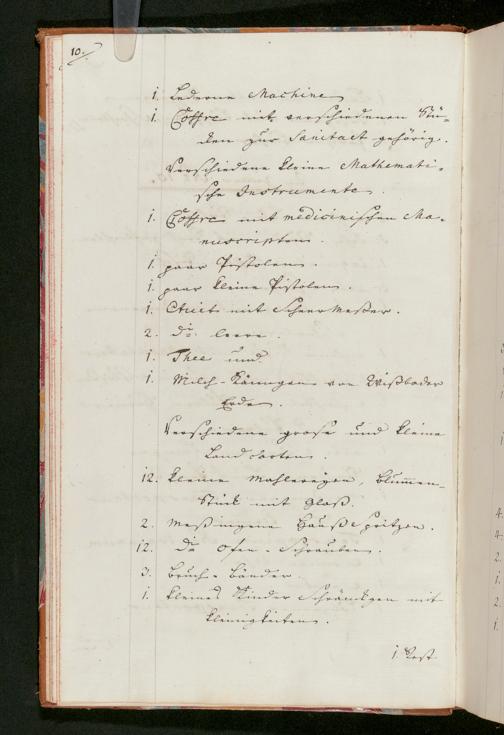 10.
1. Lederne Machine
1. Coffre mit verschiedenen Stü-
cken zur Sanitaet gehörig.
Verschiedene kleine Mathemati-
sche Instrumente.
1. Coffre mit medicinischen Ma-
nuscripten.
1. paar Pistolen.
1. paar kleine Pistolen.
1. Etuit mit Scheer Meßer.
2. do leere.
1. Thee und
1. Milch-Känngen von Wißbader
Erde.
Verschiedene grose und kleine
Land Carten.
12. kleine Mahlereyen, Blummen-
Stück mit Glaß.
2. Meßingene Hauß Spritzen.
12. do Ofen-Schrauben.
3. Bruch-Bänder.
1. kleines Kinder Schränkgen mit
kleinigkeiten.
1. Rest